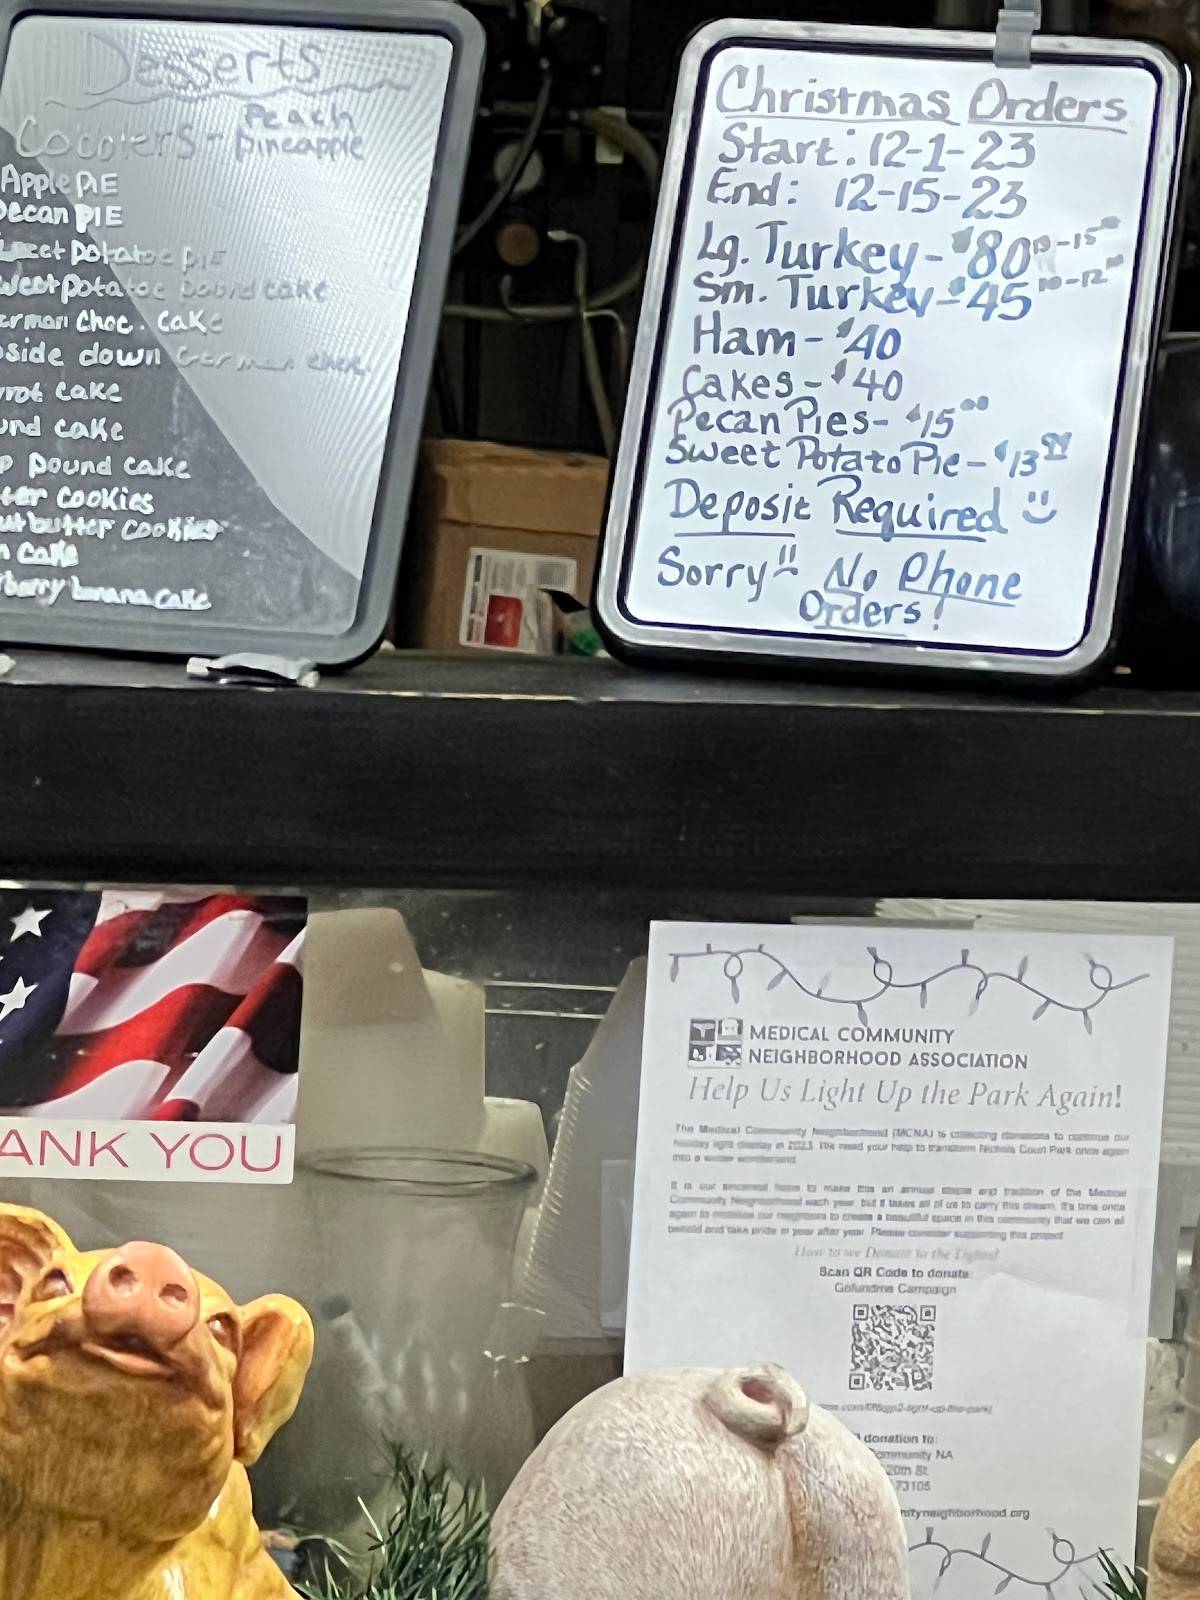 Desserts
Cobblers - Peach
pineapple
Apple PIE
Pecan PIE
Sweet potatoe pie
Sweet potatoe pound cake
erman Choc. Cake
pside down German choc.
rrot cake
und cake
p pound cake
ter cookies
ut butter cookies
n cake
berry banana cake
Christmas Orders
Start: 12-1-23
End: 12-15-23
Lg. Turkey - $80
Sm. Turkey - $45
Ham - $40
Cakes - $40
Pecan Pies - $15.00
Sweet Potato Pie - $13
Deposit Required
Sorry No Phone
Orders!
ANK YOU
MEDICAL COMMUNITY
NEIGHBORHOOD ASSOCIATION
Help Us Light Up the Park Again!
The Medical Community Neighborhood (MCNA) is collecting donations to continue our
holiday light display in 2023. We need your help to transform Nichols Court Park once again
into a winter wonderland.
It is our sincerest hope to make this an annual staple and tradition of the Medical
Community Neighborhood each year, but it takes all of us to carry this dream. It's time once
again to mobilize our neighbors to create a beautiful space in this community that we can all
behold and take pride in year after year. Please consider supporting this project.
How to we Donate to the Lights?
Scan QR Code to donate:
Gofundme Campaign
donation to:
ommunity NA
20th St.
73105
nityneighborhood.org